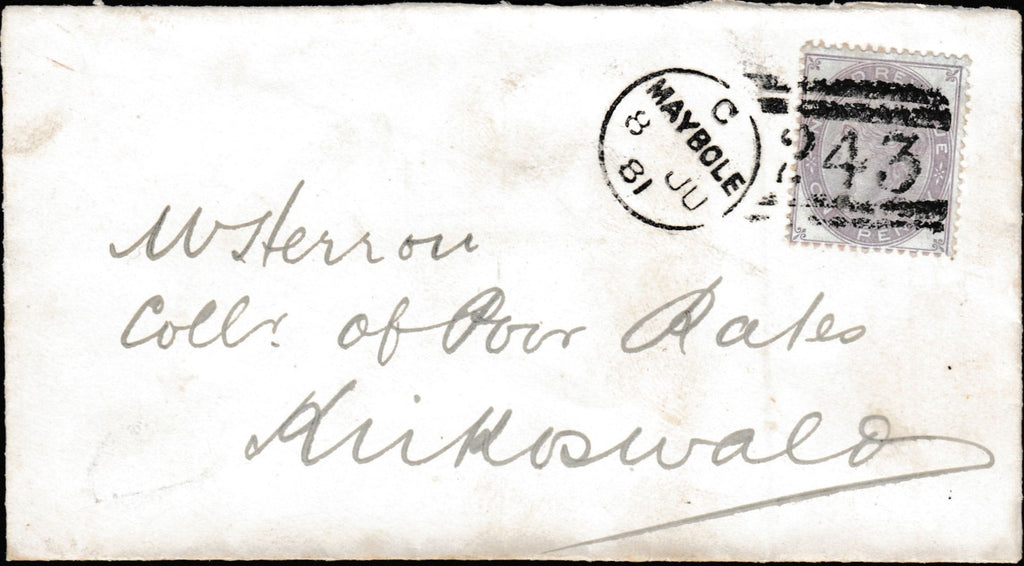 C
MAYBOLE
8 JU
81
243
Mr Herron
Collr. of Poor Rates
Kirkoswald